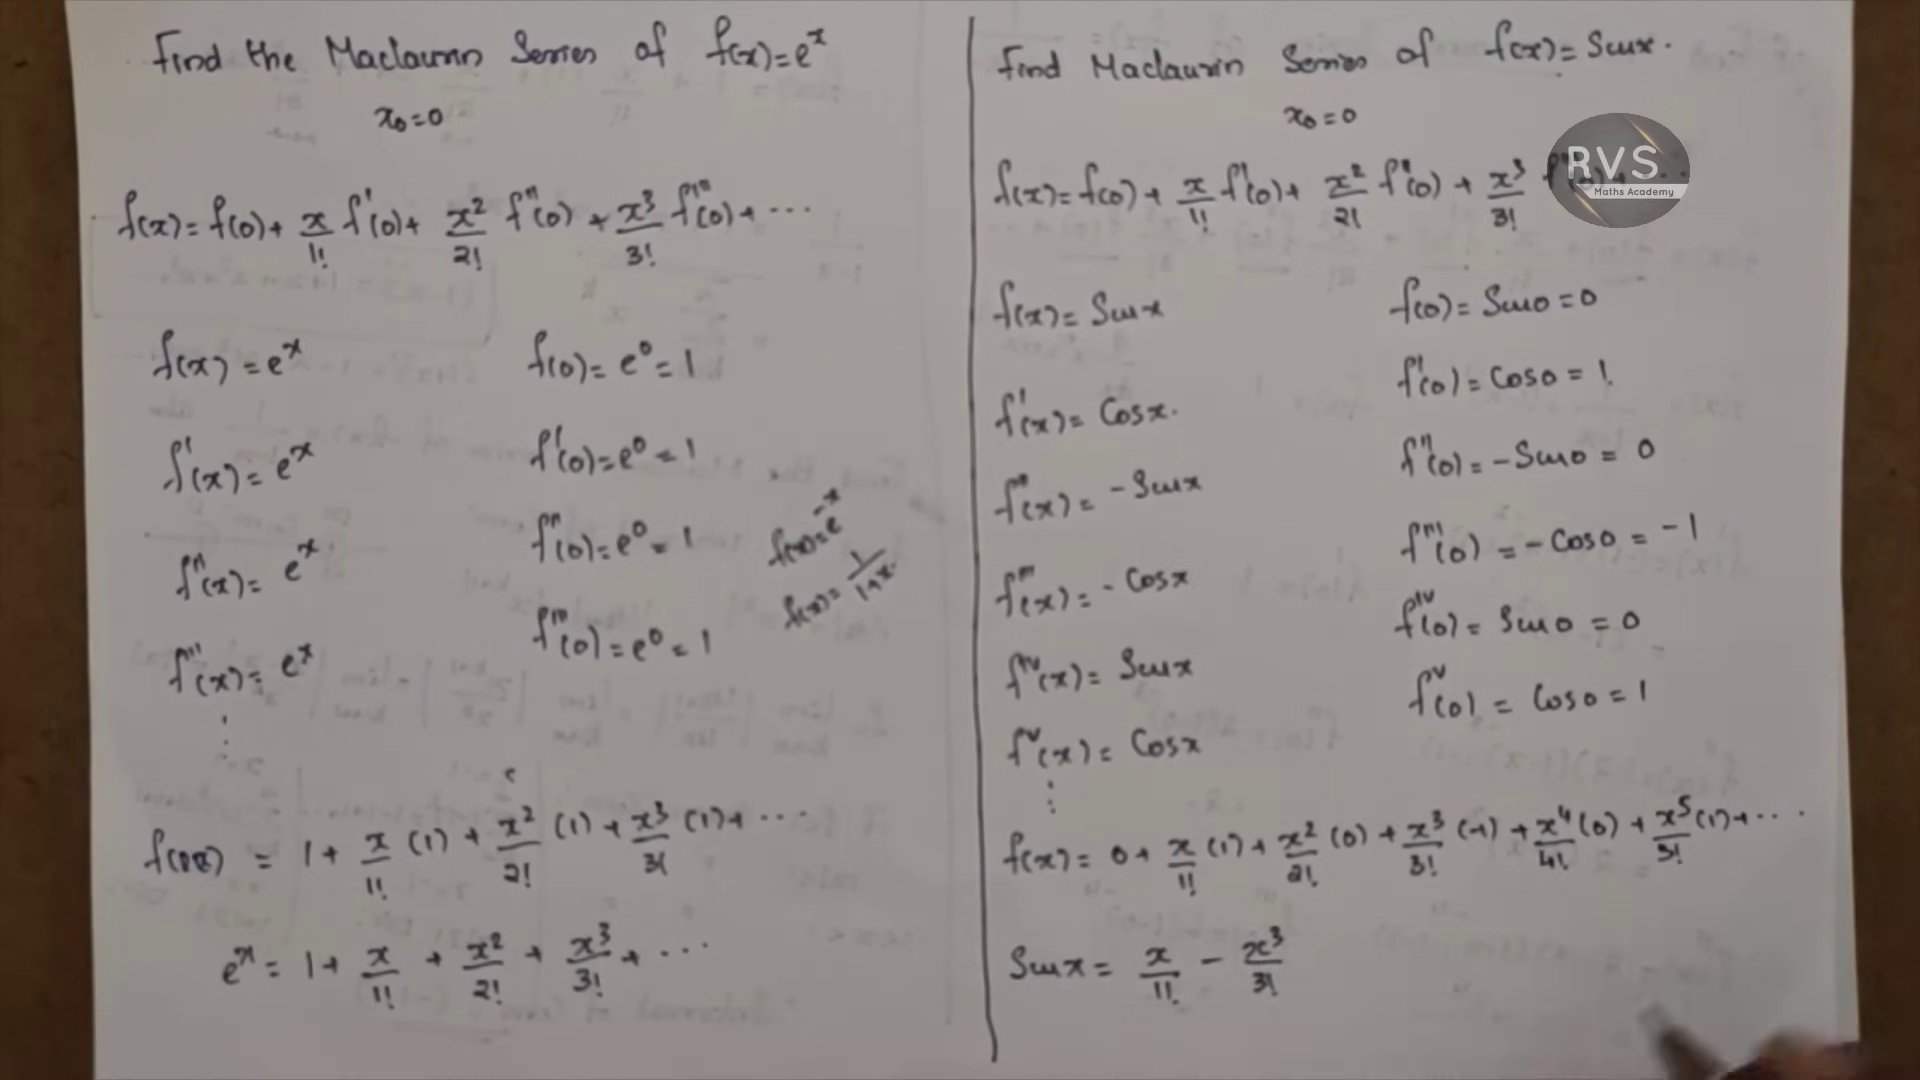 Find the Maclaurin Series of f(x)=e^x
x₀=0
f(x)=f(0)+ x/1! f'(0)+ x²/2! f''(0) + x³/3! f'''(0)+ ...
f(x) = e^x
f(0)= e⁰= 1
f'(x)= e^x
f'(0)=e⁰ = 1
f''(x)= e^x
f''(0)=e⁰ = 1
f'''(x)= e^x
f'''(0)=e⁰ = 1
f(x)=e^-x
f(x)= 1/1+x.
f(x) = 1+ x/1! (1) + x²/2! (1) + x³/3! (1)+ ...
e^x = 1+ x/1! + x²/2! + x³/3! + ...
Find Maclaurin Series of f(x)= Sinx.
x₀=0
RVS
Maths Academy
f(x)=f(0)+ x/1! f'(0)+ x²/2! f''(0) + x³/3!
f(x)= Sinx
f(0)= Sin0 =0
f'(x)= Cosx.
f'(0)= Cos0 = 1.
f''(x)= -Sinx
f''(0)= -Sin0 = 0
f'''(x)= -Cosx
f'''(0) = -Cos0 = -1
f^IV(x)= Sinx
f^IV(0)= Sin0 = 0
f^V(x)= Cosx
f^V(0) = Cos0 = 1
f(x)= 0+ x/1! (1)+ x²/2! (0) + x³/3! (-1) + x⁴/4! (0) + x⁵/5! (1)+ ...
Sinx = x/1! - x³/3!